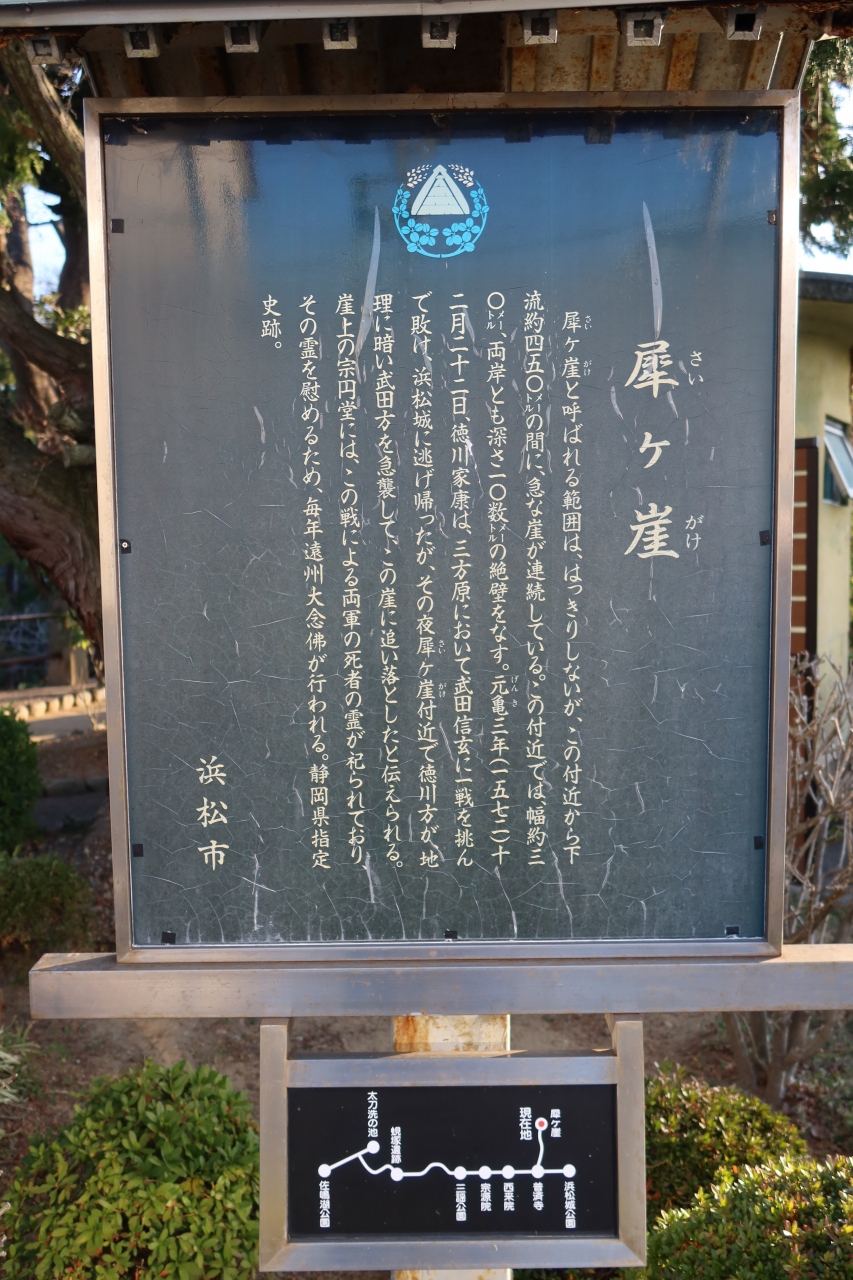 犀ヶ崖
さい
がけ
犀ヶ崖と呼ばれる範囲は、はっきりしないが、この付近から下
さい
がけ
流約四五〇メートルの間に、急な崖が連続している。この付近では、幅約三
〇メートル両岸とも深さ一〇数メートルの絶壁をなす。元亀三年(一五七二)十
げんき
二月二十二日、徳川家康は、三方原において武田信玄に一戦を挑ん
で敗け、浜松城に逃げ帰ったが、その夜犀ヶ崖付近で徳川方が、地
さい
がけ
理に暗い武田方を急襲して、この崖に追い落としたと伝えられる。
崖上の宗円堂には、この戦による両軍の死者の霊が祀られており
その霊を慰めるため、毎年遠州大念佛が行われる。静岡県指定
史跡。
浜松市
太刀洗の池
蜆塚遺跡
現在地
犀ヶ崖
佐鳴湖公園
三組公園
宗源院
西来院
普済寺
浜松城公園